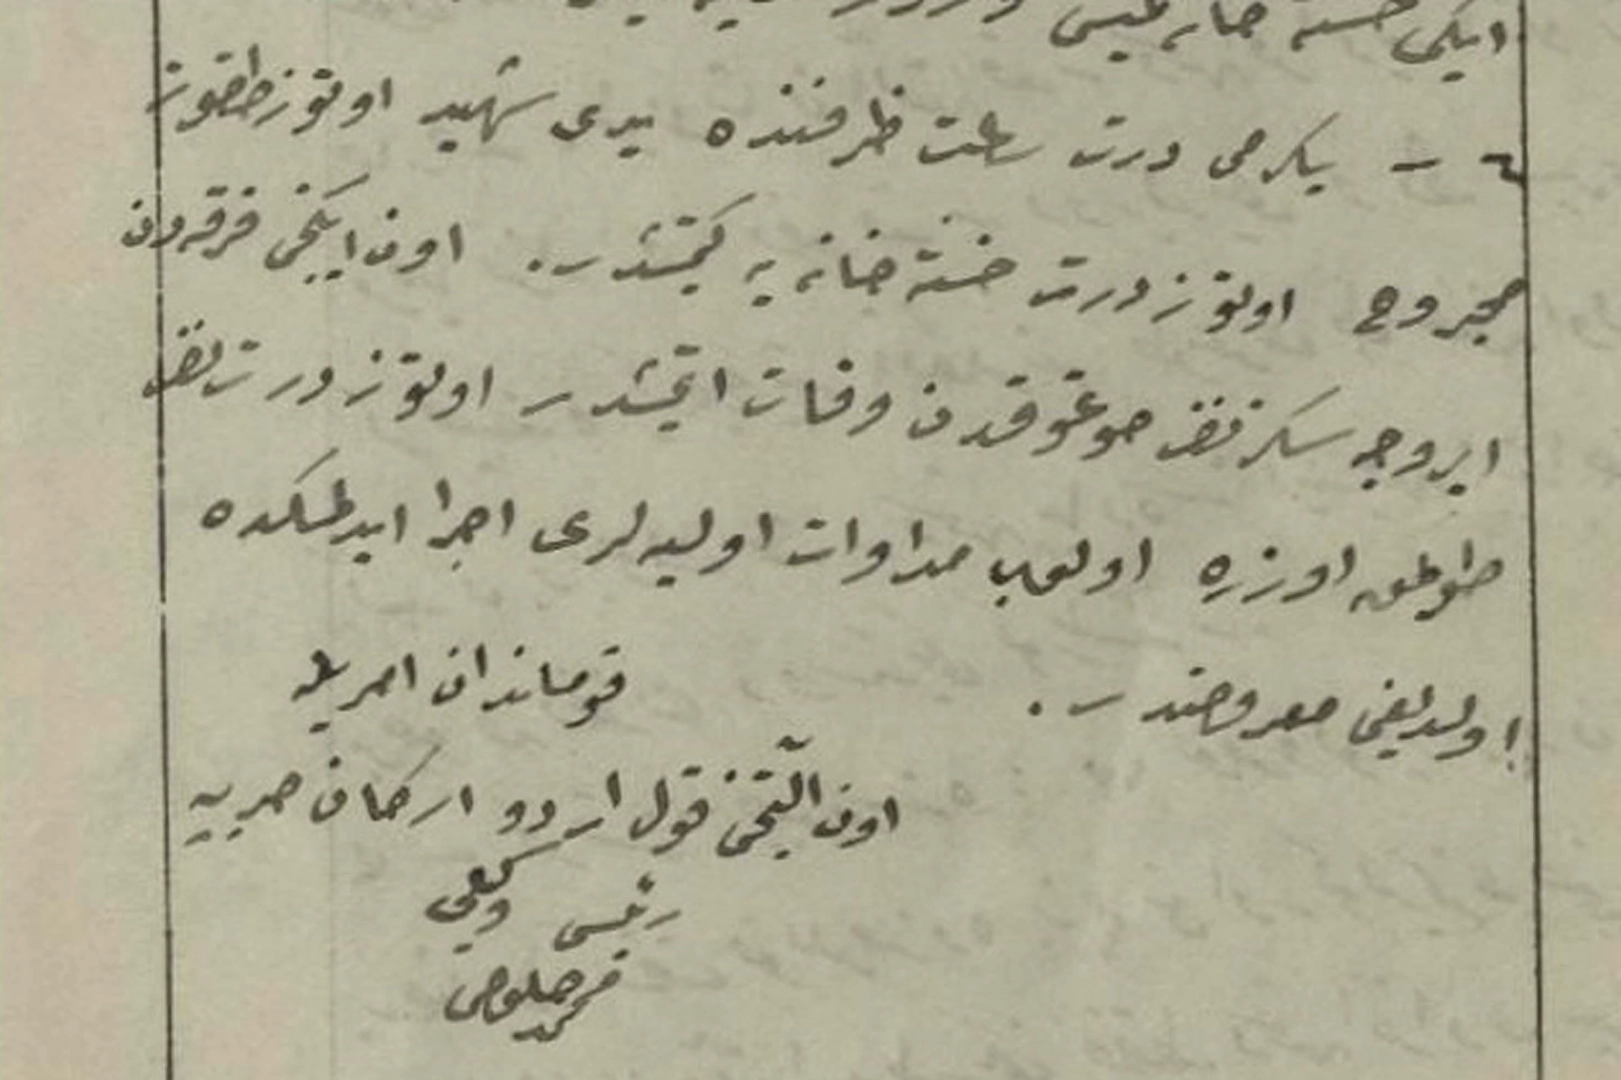 ایکی خسته خانه
٤ – یکرمی درت ساعت ظرفنده یدی شهید اوتوز طقوز
مجروح اوتوز درت خسته خانه یه کیتمشدر. اون ایکنجی فرقه دن
سکز نفر صوغوقدن وفات ایتمشدر اوتوز درت نفر
طوکمق اوزره اولوب مداوات اولیه لری اجرا ایدلمکده
اولدیغی معروضدر.
قوماندان امریله
اون التنجی قول اردو ارکان حربیه
رئیسی وکیلی